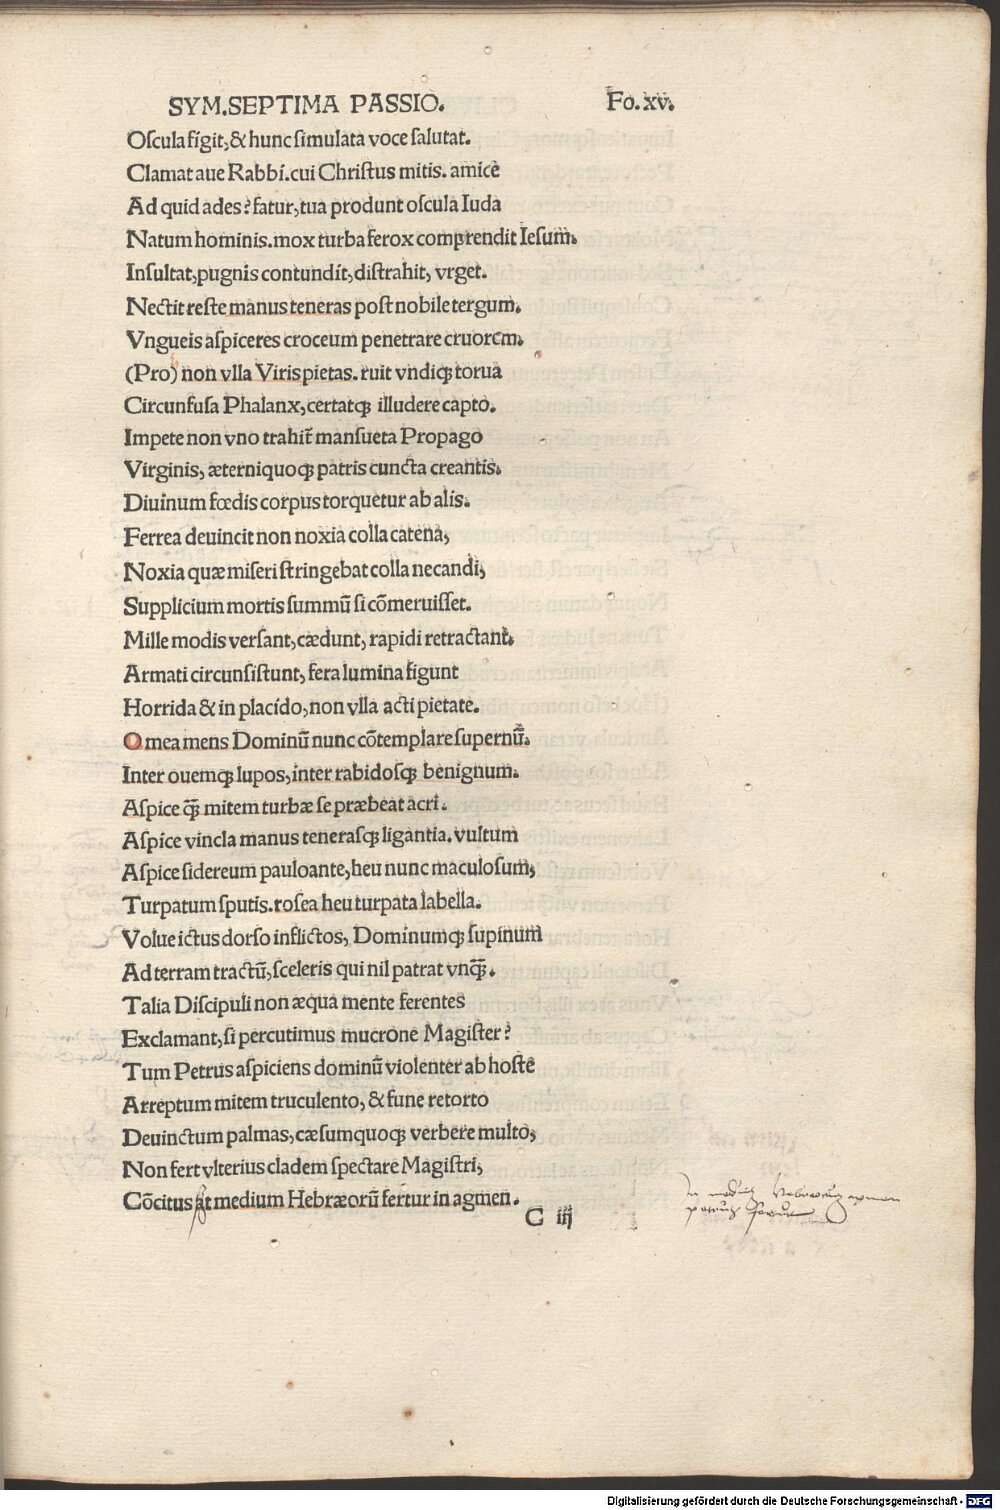 SYM.SEPTIMA PASSIO. Fo.xv.
Oscula figit,& hunc simulata voce salutat.
Clamat aue Rabbi.cui Christus mitis. amice
Ad quid ades? fatur,tua produnt oscula Iuda
Natum hominis.mox turba ferox comprendit Iesum.
Insultat,pugnis contundit,distrahit, vrget.
Nectit reste manus teneras post nobile tergum.
Vngueis aspiceres croceum penetrare cruorem.
(Pro) non vlla Viris pietas. ruit vndiqꝫ torua
Circunfusa Phalanx,certatqꝫ illudere capto.
Impete non vno trahit mansueta Propago
Virginis, æterniquoqꝫ patris cuncta creantis.
Diuinum fœdis corpus torquetur ab alis.
Ferrea deuincit non noxia colla catena,
Noxia quæ miseri stringebat colla necandi,
Supplicium mortis summū si cōmeruisset.
Mille modis versant,cædunt, rapidi retractant.
Armati circunsistunt, fera lumina figunt
Horrida & in placido,non vlla acti pietate.
O mea mens Dominū nunc cōtemplare supernū.
Inter ouemqꝫ lupos,inter rabidosqꝫ benignum.
Aspice qꝫ̄ mitem turbæ se præbeat acri.
Aspice vincla manus tenerasqꝫ ligantia. vultum
Aspice sidereum pauloante,heu nunc maculosum,
Turpatum sputis.rosea heu turpata labella.
Volue ictus dorso inflictos, Dominumqꝫ supinum
Ad terram tractū,sceleris qui nil patrat vnqꝫ̄.
Talia Discipuli non æqua mente ferentes
Exclamant,si percutimus mucrone Magister?
Tum Petrus aspiciens dominū violenter ab hoste
Arreptum mitem truculento, & fune retorto
Deuinctum palmas,cæsumquoqꝫ verbere multo,
Non fert vlterius cladem spectare Magistri,
Cōcitus at medium Hebræorū fertur in agmen.
C iij
Digitalisierung gefördert durch die Deutsche Forschungsgemeinschaft - DFG